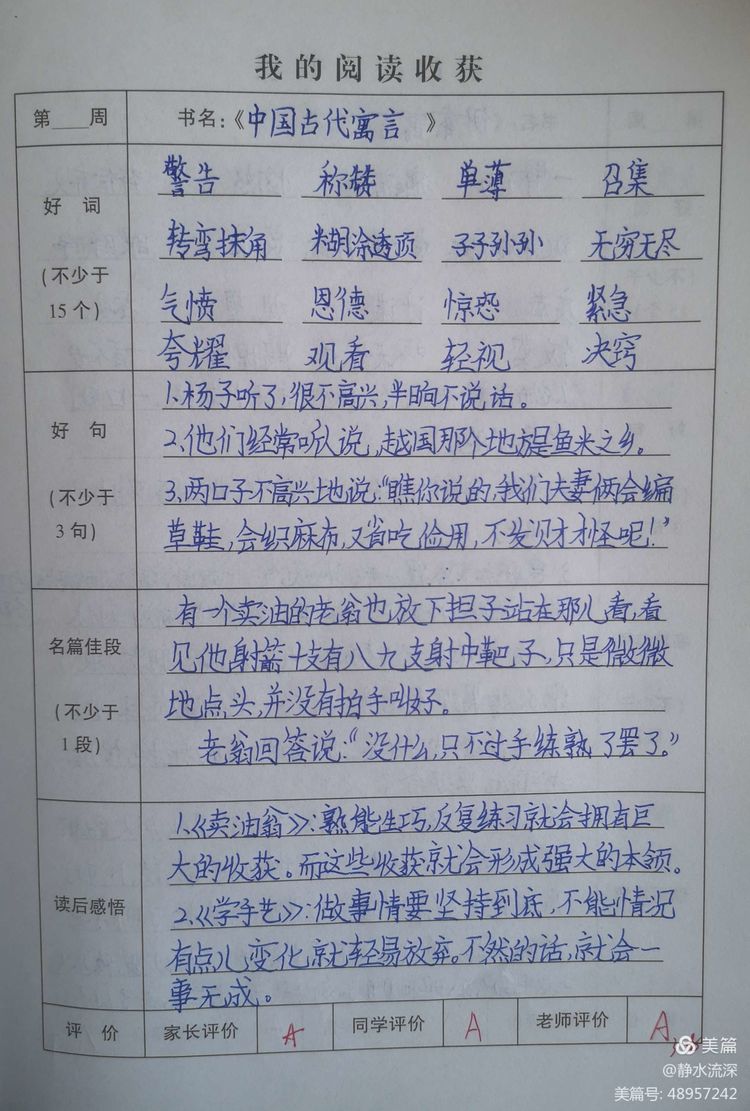 我的阅读收获
第____周 书名:《中国古代寓言》
好词
(不少于
15个)
警告 称 单薄 召集
转弯抹角 糊涂透顶 子子孙孙 无穷无尽
气愤 恩德 惊恐 紧急
夸耀 观看 轻视 决窍
好句
(不少于
3句)
1、杨子听了,很不高兴,半晌不说话。
2、他们经常听人说,越国那个地方是鱼米之乡。
3、两口子不高兴地说:“瞧你说的,我们夫妻俩会编
草鞋,会织麻布,又省吃俭用,不发财才怪呢!”
名篇佳段
(不少于
1段)
有一个卖油的老翁也放下担子站在那儿看,看
见他射箭十支有八九支射中靶子、只是微微
地点头,并没有拍手叫好。
老翁回答说:“没什么,只不过手练熟了罢了。”
读后感悟
1、《卖油翁》:熟能生巧,反复练习就会拥有巨
大的收获。而这些收获就会形成强大的本领。
2、《学手艺》:做事情要坚持到底,不能情况
有点儿变化,就轻易放弃。不然的话,就会一
事无成。
评价 家长评价 A 同学评价 A 老师评价 A
美篇
@静水流深
美篇号: 48957242